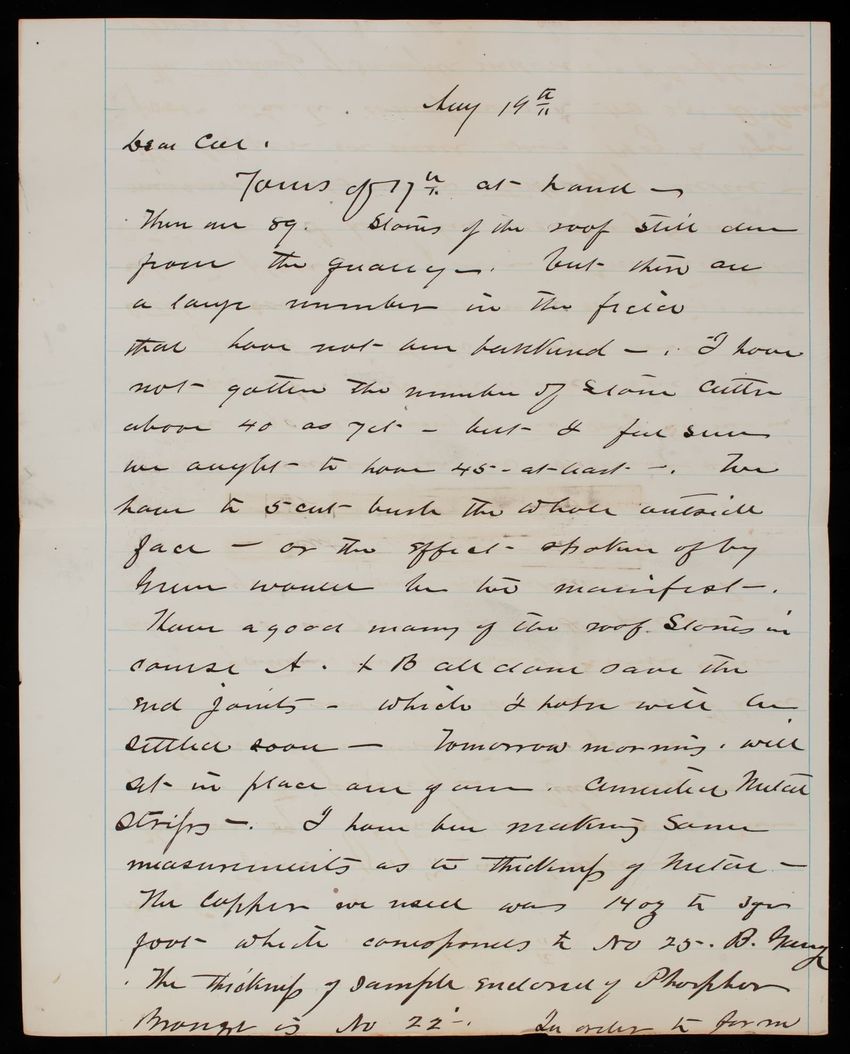 Aug 19th
Dear Col.
Yours of 17th at hand —
There are 89. Stones of the roof still due
from the quarry —. but there are
a large number in the field
that have not been bankered —. I have
not gotten the number of Stone Cutters
above 40 as yet — but I feel sure
we ought to have 45 - at least —. We
have to 5 cut bush the whole outside
face — or the effect spoken of by
Green would be too manifest —.
Have a good many of the roof Stones in
course A. & B all done save the
end joints — which I hope will be
settled soon — Tomorrow morning. will
set in place one of our. Metal
Strips —. I have been making Some
measurements as to thickness of Metal —
The Copper we used was 14 oz to sqr
foot which corresponds to No 25 -. B. Gauge
. The thickness of sample enclosed of Phosphor
Bronze is No 22 —. In order to form